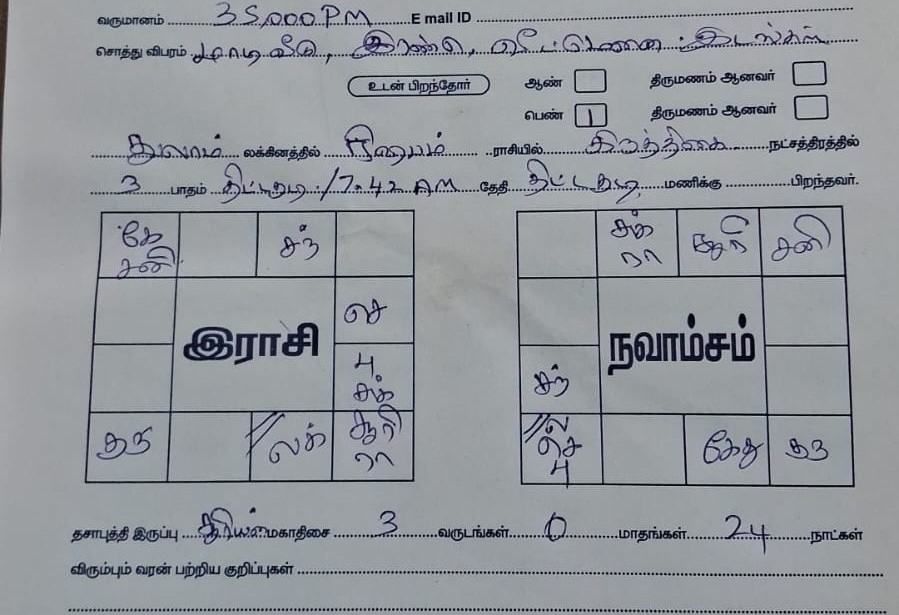 வருமானம் 35,000 PM E mail ID
சொத்து விபரம் மாடி வீடு, இரண்டு,
உடன் பிறந்தோர் ஆண் திருமணம் ஆனவர்
பெண் 1 திருமணம் ஆனவர்
துலாம் லக்கினத்தில் ரிஷபம் ராசியில் கிருத்திகை நட்சத்திரத்தில்
3 பாதம் /7.42 AM தேதி மணிக்கு பிறந்தவர்.
கே சந் சுக் சூரி சனி
சனி ரா
இராசி செ நவாம்சம்
பு சந்
சுக்
குரு லக் சூரி ல கேது குரு
ரா செ
பு
தசாபுத்தி இருப்பு சூரியன் மகாதிசை 3 வருடங்கள் 0 மாதங்கள் 24 நாட்கள்
விரும்பும் வரன் பற்றிய குறிப்புகள்